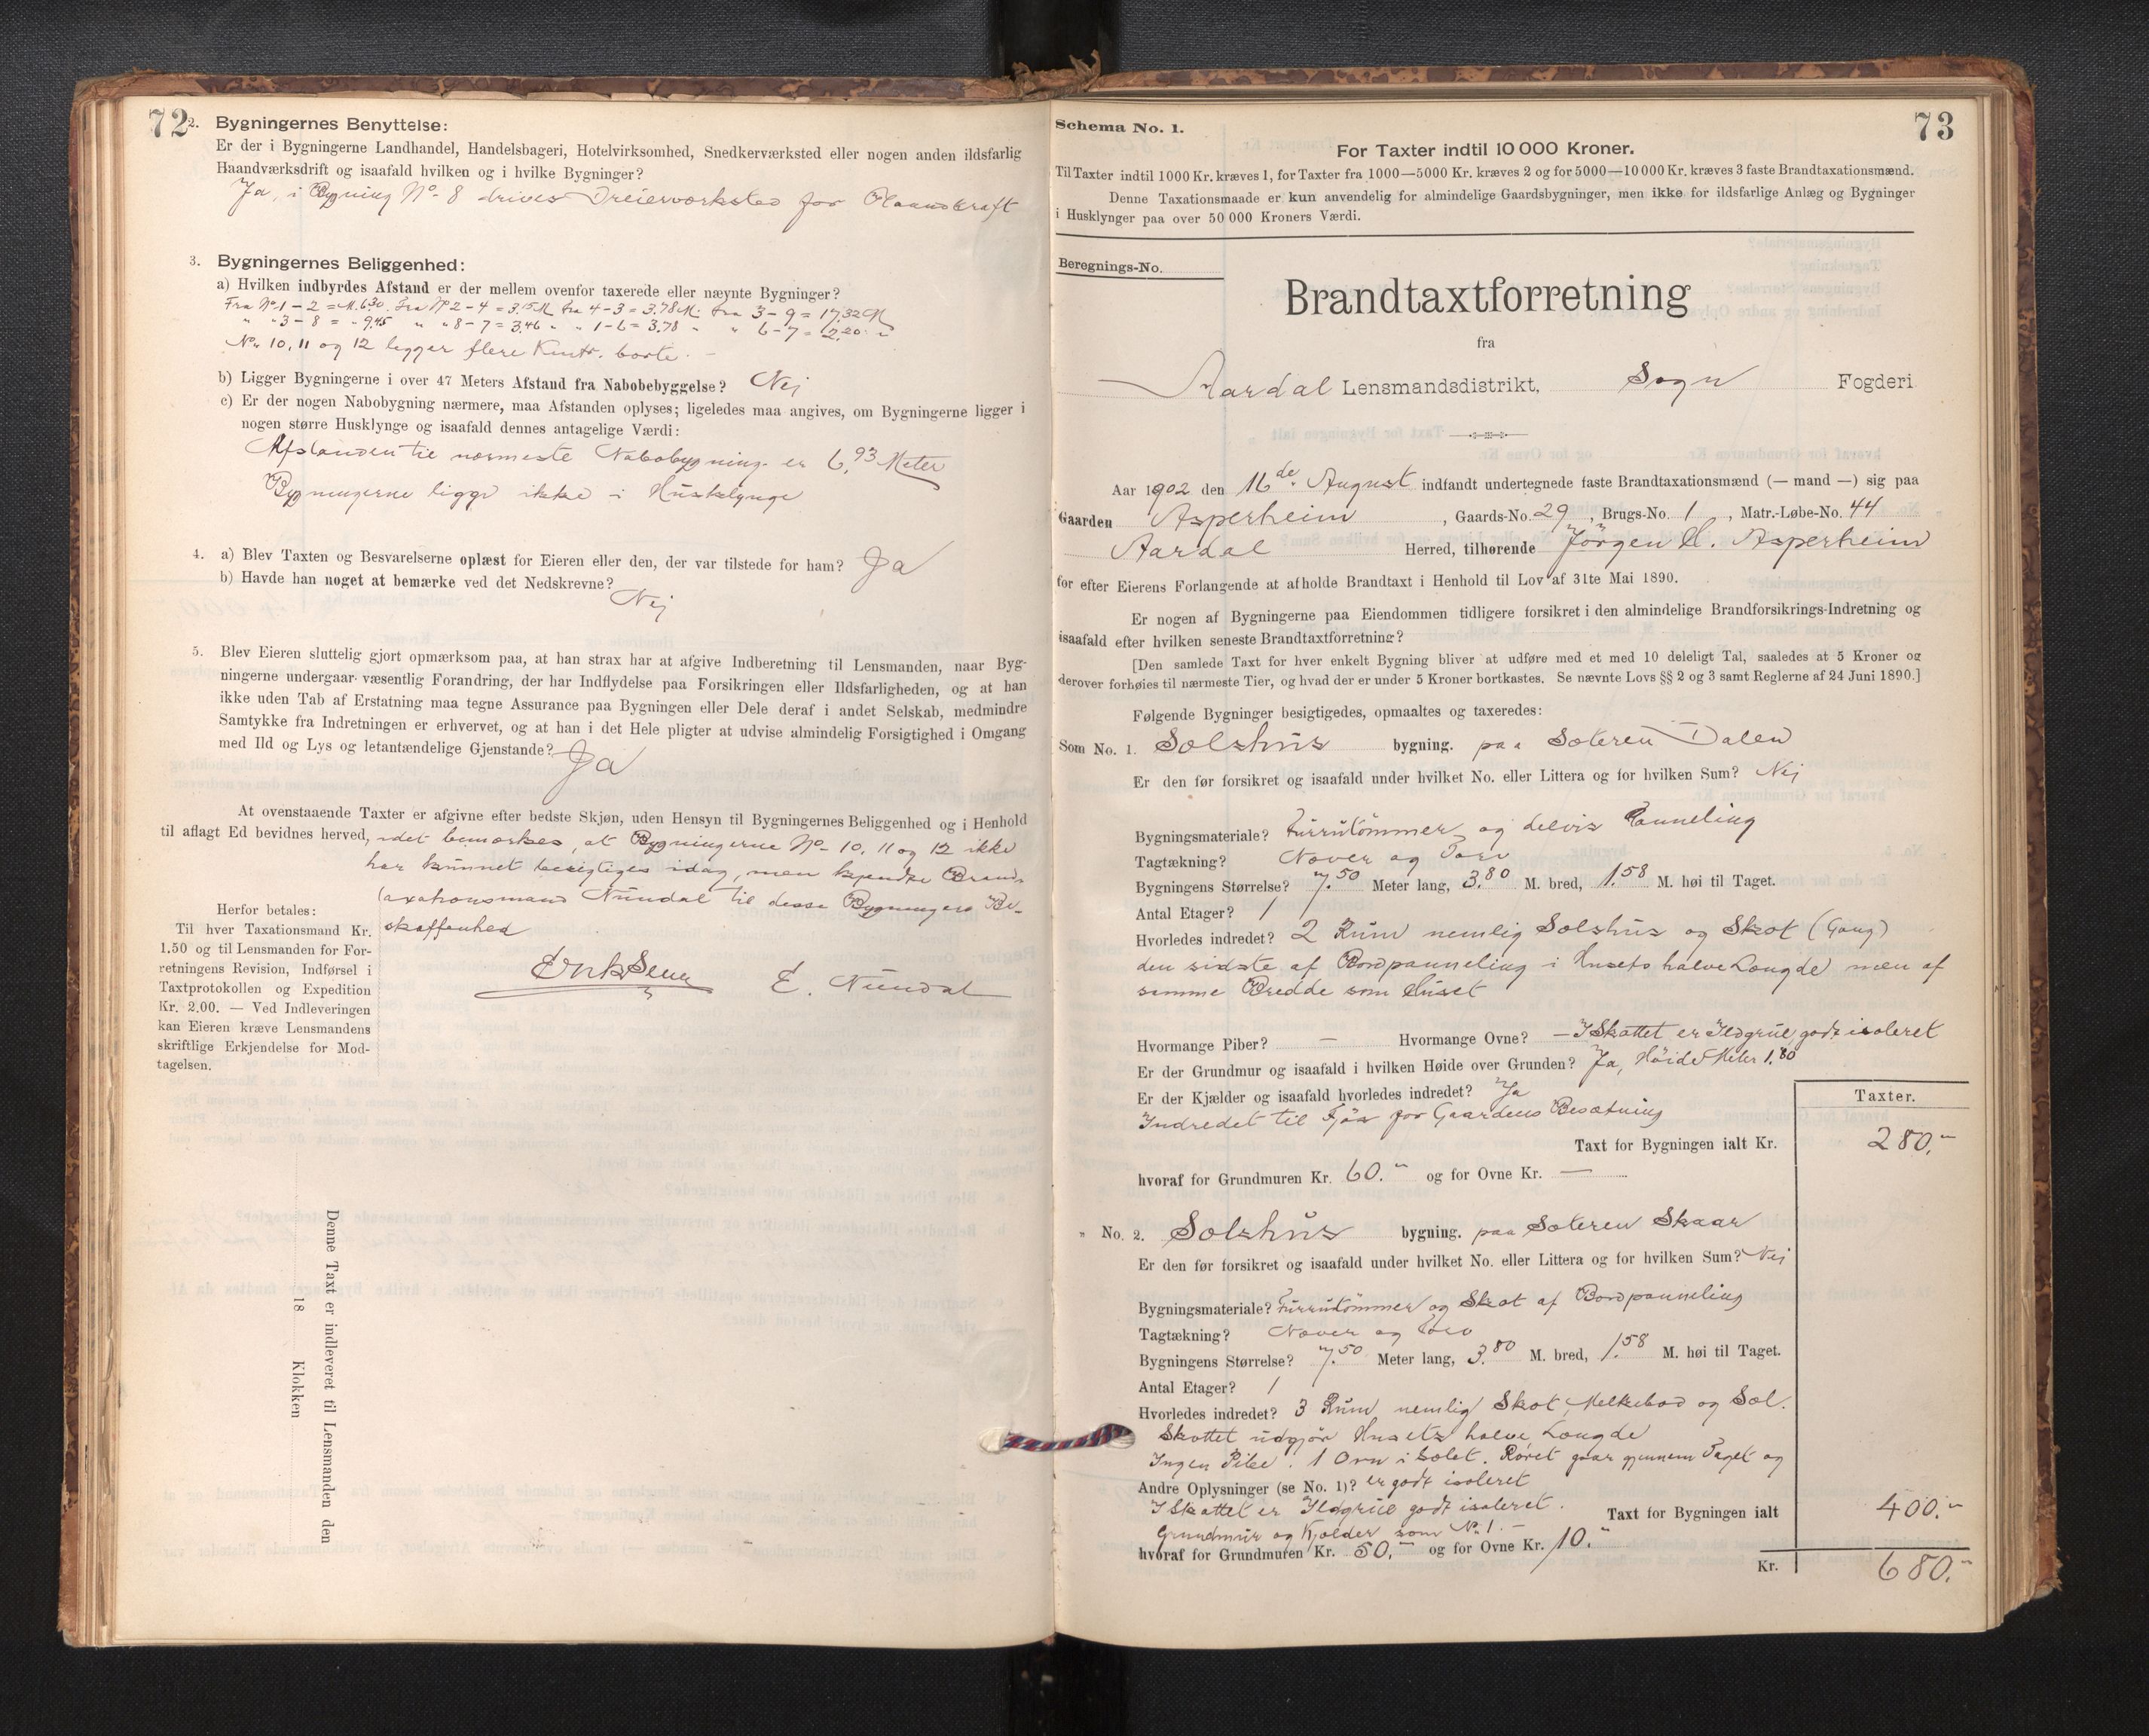 72
2. Bygningernes Benyttelse:
Er der i Bygningerne Landhandel, Handelsbageri, Hotelvirksomhed, Snedkerværksted eller nogen anden ildsfarlig
Haandværksdrift og isaafald hvilken og i hvilke Bygninger?
Ja, i Bygning No 8 drives Dreierværksted for Haandkraft
3. Bygningernes Beliggenhed:
a) Hvilken indbyrdes Afstand er der mellem ovenfor taxerede eller nævnte Bygninger?
Fra No 1 – 2 = M. 6.30. Fra No 2 – 4 = 3.15 M. Fra 4 – 3 = 3.78 M. Fra 3 – 9 = 17.32 M
" " 3 – 8 = " 9.45 " " 8 – 7 = 3.46 " " 1 – 6 = 3.78 " " 6 – 7 = 2.20. "
No 10, 11 og 12 ligger flere Kmtr. borte. –
b) Ligger Bygningerne i over 47 Meters Afstand fra Nabobebyggelse? Nej
c) Er der nogen Nabobygning nærmere, maa Afstanden oplyses; ligeledes maa angives, om Bygningerne ligger i
nogen større Husklynge og isaafald dennes antagelige Værdi:
Afstanden til nærmeste Nabobygning er 6,93 Meter
Bygningerne ligge ikke i Husklynge
4. a) Blev Taxten og Besvarelserne oplæst for Eieren eller den, der var tilstede for ham? Ja
b) Havde han noget at bemærke ved det Nedskrevne?
Nej
5. Blev Eieren sluttelig gjort opmærksom paa, at han strax har at afgive Indberetning til Lensmanden, naar Byg-
ningerne undergaar væsentlig Forandring, der har Indflydelse paa Forsikringen eller Ildsfarligheden, og at han
ikke uden Tab af Erstatning maa tegne Assurance paa Bygningen eller Dele deraf i andet Selskab, medmindre
Samtykke fra Indretningen er erhvervet, og at han i det Hele pligter at udvise almindelig Forsigtighed i Omgang
med Ild og Lys og letantændelige Gjenstande? Ja
At ovenstaaende Taxter er afgivne efter bedste Skjøn, uden Hensyn til Bygningernes Beliggenhed og i Henhold
til aflagt Ed bevidnes herved, idet bemærkes, at Bygningerne No 10, 11 og 12 ikke
har kunnet besigtiges idag, men kjendte Brand-
taxationsmand Nundal til disse Bygningers Be-
skaffenhed
Herfor betales:
Til hver Taxationsmand Kr.
1.50 og til Lensmanden for For-
retningens Revision, Indførsel i
Taxtprotokollen og Expedition
Kr. 2.00. — Ved Indleveringen
kan Eieren kræve Lensmandens
skriftlige Erkjendelse for Mod-
tagelsen.
E. Nundal
Denne Taxt er indleveret til Lensmanden den
18 Klokken
73
Schema No. 1.
For Taxter indtil 10 000 Kroner.
Til Taxter indtil 1000 Kr. kræves 1, for Taxter fra 1000—5000 Kr. kræves 2 og for 5000—10 000 Kr. kræves 3 faste Brandtaxationsmænd.
Denne Taxationsmaade er kun anvendelig for almindelige Gaardsbygninger, men ikke for ildsfarlige Anlæg og Bygninger
i Husklynger paa over 50 000 Kroners Værdi.
Beregnings-No.
Brandtaxtforretning
fra
Aardal Lensmandsdistrikt, Sogn Fogderi
Aar 1902 den 16de August indfandt undertegnede faste Brandtaxationsmænd (— mand —) sig paa
Gaarden Asperheim, Gaards-No. 29, Brugs-No. 1, Matr.-Løbe-No. 44
Aardal Herred, tilhørende Jörgen H. Asperheim
for efter Eierens Forlangende at afholde Brandtaxt i Henhold til Lov af 31te Mai 1890.
Er nogen af Bygningerne paa Eiendommen tidligere forsikret i den almindelige Brandforsikrings-Indretning og
isaafald efter hvilken seneste Brandtaxtforretning?
[Den samlede Taxt for hver enkelt Bygning bliver at udføre med et med 10 deleligt Tal, saaledes at 5 Kroner og
derover forhøies til nærmeste Tier, og hvad der er under 5 Kroner bortkastes. Se nævnte Lovs §§ 2 og 3 samt Reglerne af 24 Juni 1890.]
Følgende Bygninger besigtigedes, opmaaltes og taxeredes:
Som No. 1. Selshus bygning. paa Sæteren Dalen
Er den før forsikret og isaafald under hvilket No. eller Littera og for hvilken Sum? Nej
Bygningsmateriale? Furrutömmer og delvis Panneling
Tagtækning? Næver og Torv
Bygningens Størrelse? 7.50 Meter lang, 3.80 M. bred, 1.58 M. høi til Taget.
Antal Etager? 1
Hvorledes indredet? 2 Rum nemlig Selshus og Skot (Gang)
den sidste af Bordpanneling i Husets halve Længde men af
samme Bredde som Huset
Hvormange Piber? — Hvormange Ovne? — I Skottet er Ildgrue godt isoleret
Er der Grundmur og isaafald i hvilken Høide over Grunden? Ja, Höide Meter 1.80
Er der Kjælder og isaafald hvorledes indredet? Ja
Indredet til Fjös for Gaardens Besætning
Taxter.
Taxt for Bygningen ialt Kr. 280.–
hvoraf for Grundmuren Kr. 60.– og for Ovne Kr. —
" No. 2. Selshus bygning. paa Sæteren Skaar
Er den før forsikret og isaafald under hvilket No. eller Littera og for hvilken Sum? Nei
Bygningsmateriale? Furrutömmer og Skot af Bordpanneling
Tagtækning? Næver og Torv
Bygningens Størrelse? 7.50 Meter lang, 3.80 M. bred, 1.58 M. høi til Taget.
Antal Etager? 1
Hvorledes indredet? 3 Rum nemlig Skot, Melkebod og Sel.
Skottet udgjör Husets halve Længde
Ingen Pibe. 1 Ovn i Selet. Röret gaar gjennem Taget og
Andre Oplysninger (se No. 1)? er godt isoleret
I Skottet er Ildgrue godt isoleret. Taxt for Bygningen ialt 400.–
Grundmur og Kjælder som No 1. –
hvoraf for Grundmuren Kr. 50.– og for Ovne Kr. 10.–
Kr. 680.–